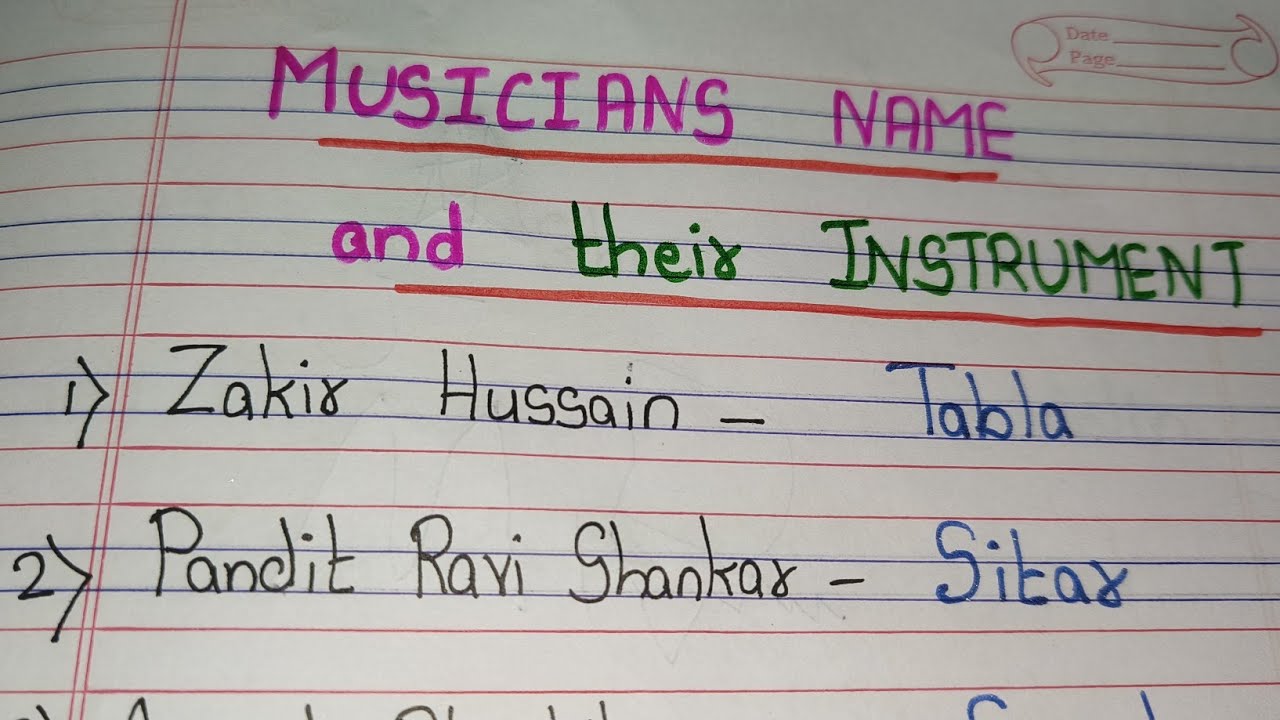 Date
Page
MUSICIANS NAME
and their INSTRUMENT
1) Zakir Hussain - Tabla
2) Pandit Ravi Shankar - Sitar